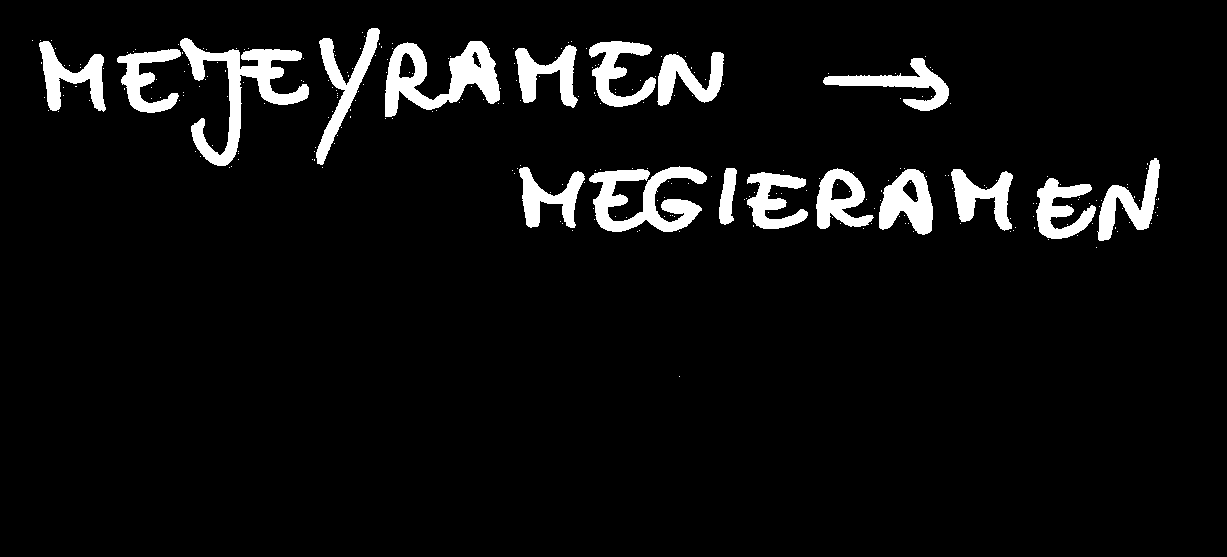 MEJEYRAMEN →
MEGIERAMEN